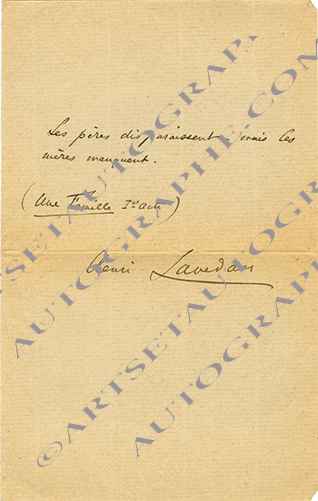 Les pères disparaissent, mais les
mères manquent.
(Une Famille 1er acte)
Henri Lavedan
©ARTSETAUTOGRAPHE.COM
ARTSETAUTOGRAPHE.COM
AUTOGRAPHE.COM